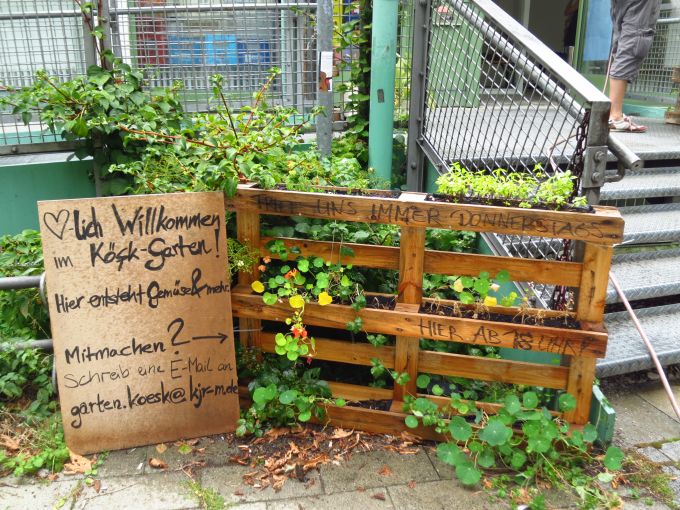 ♡lich Willkommen
im Köşk-Garten!
Hier entsteht Gemüse & mehr.
Mitmachen?
Schreib eine E-Mail an
garten.koesk@kjr-m.de
TRIFF UNS IMMER DONNERSTAGS
HIER AB 18 UHR!